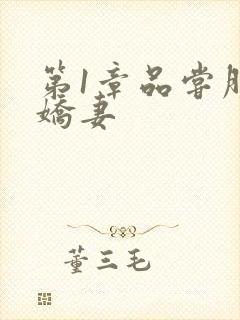 第1章品尝
娇妻
董三毛